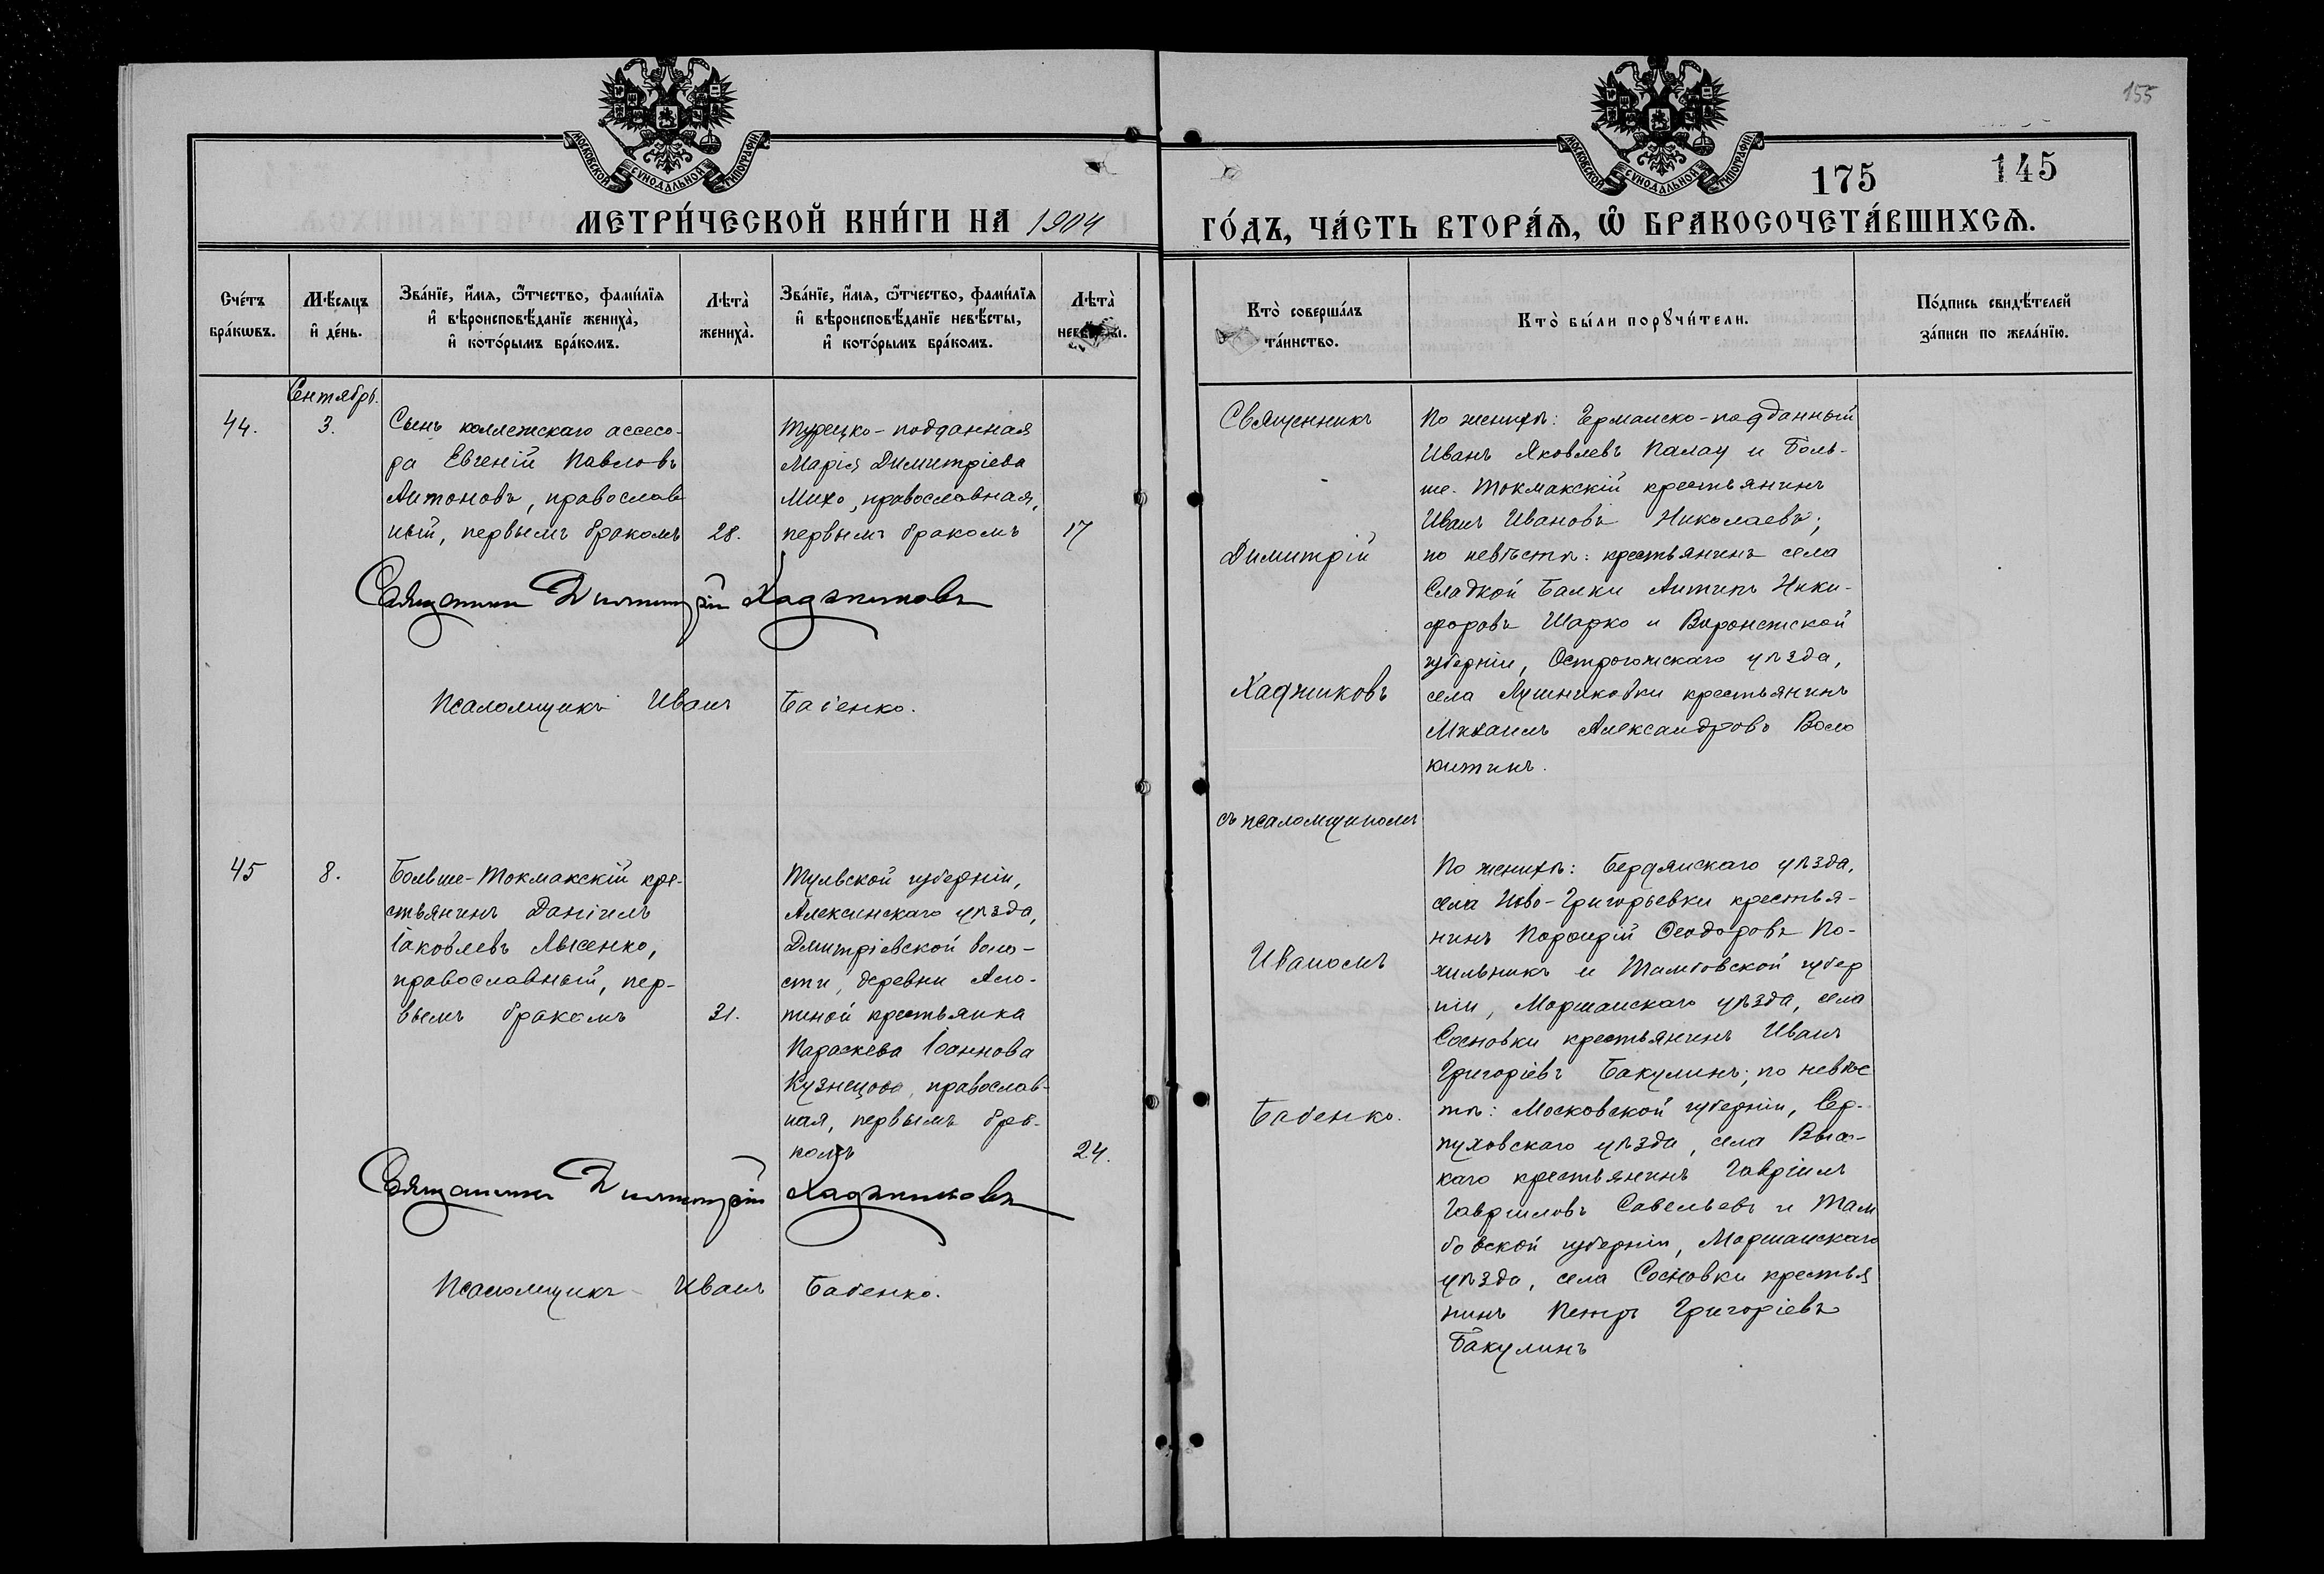 155
175 145
МОСКОВСКОЙ СѴНОДАЛЬНОЙ ТИПОГРАФІИ.
МОСКОВСКОЙ СѴНОДАЛЬНОЙ ТИПОГРАФІИ.
МЕТРИ́ЧЕСКОЙ КНИ́ГИ НА 1904
ГО́ДЪ, ЧА́СТЬ ВТОРА́Ѧ, Ѽ БРАКОСОЧЕТА́ВШИХСѦ.
Сче́тъ
бра́кѡвъ.
Мѣ́сѧцъ
и҆ де́нь.
Зва́нїе, и҆́мѧ, ѻ҆́тчество, фами́лїѧ
и҆ вѣроисповѣ́данїе жениха̀,
и҆ кото́рымъ бра́комъ.
Лѣта̀
жениха̀.
Зва́нїе, и҆́мѧ, ѻ҆́тчество, фами́лїѧ
и҆ вѣроисповѣ́данїе невѣ́сты,
и҆ кото́рымъ бра́комъ.
Лѣта̀
невѣ́сты.
Кто̀ соверша́лъ
та́инство.
Кто̀ бы́ли порꙋчи́тели.
По́дпись свидѣ́телей
за́писи по жела́нїю.
Сентябрь.
44.
3.
Сынъ коллежскаго ассесо-
ра Евгеній Павловъ
Антоновъ, православ
ный, первымъ бракомъ
28.
Турецко-подданная
Марія Димитріева
Михо, православная,
первымъ бракомъ
17
Священникъ Димитрій Хаджиновъ
Псаломщикъ Иванъ Бабенко.
Священникъ
Димитрій
Хаджиновъ
съ псаломщикомъ
Иваномъ
Бабенко.
По женихѣ: Германско-подданный
Иванъ Яковлевъ Палау и Боль-
ше-Токмакскій крестьянинъ
Иванъ Ивановъ Николаевъ;
по невѣстѣ: крестьянинъ села
Сладкой Балки Антипъ Ники-
форовъ Шарко и Воронежской
губерніи, Острогожскаго уѣзда,
села Лушниковки крестьянинъ
Михаилъ Александровъ Воло
китинъ.
45
8.
Больше-Токмакскій кре-
стьянинъ Даніилъ
Іаковлевъ Лысенко,
православный, пер-
вымъ бракомъ
31.
Тульской губерніи,
Алексинскаго уѣзда,
Дмитріевской воло-
сти, деревни Ало-
пиной крестьянка
Параскева Іоаннова
Кузнецова, православ-
ная, первымъ бра-
комъ
24.
Священникъ Димитрій Хаджиновъ
Псаломщикъ Иванъ Бабенко.
По женихѣ: Бердянскаго уѣзда,
села Ново-Григорьевки крестья-
нинъ Порфирій Ѳеодоровъ По-
хильникъ и Тамбовской губер
ніи, Моршанскаго уѣзда, села
Сосновки крестьянинъ Иванъ
Григоріевъ Бакулинъ; по невѣс
тѣ: Московской губерніи, Сер-
пуховскаго уѣзда, села Высо-
каго крестьянинъ Гавріилъ
Гавриловъ Савельевъ и Там
бовской губерніи, Моршанскаго
уѣзда, села Сосновки крестья
нинъ Петръ Григоріевъ
Бакулинъ